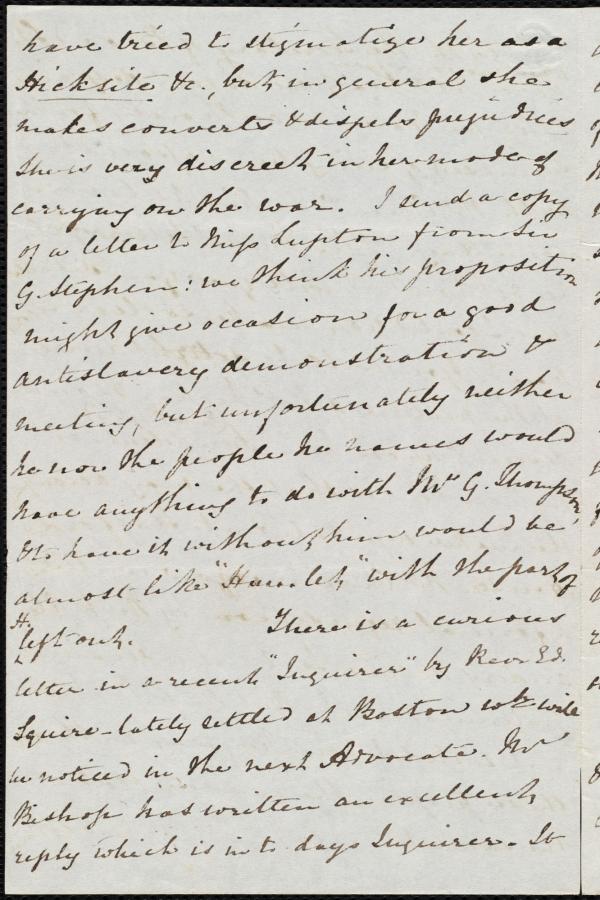 have tried to stigmatize her as a
Hicksite &c., but in general she
makes converts & dispels prejudices
She is very discreet in her mode of
carrying on the war. I send a copy
of a letter to Miss Lupton from Sir
G. Stephen: we think his proposition
might give occasion for a good
antislavery demonstration &
meeting, but unfortunately neither
he nor the people he names would
have anything to do with Mr G. Thompson,
& to have it without him would be
almost like "Hamlet" with the part of
H.
left out. There is a curious
letter in a recent "Inquirer" by Revd Ed.
Squire - lately settled at Boston wh. will
be noticed in the next Advocate. Mr
Bishop has written an excellent
reply which is in to days Inquirer - It